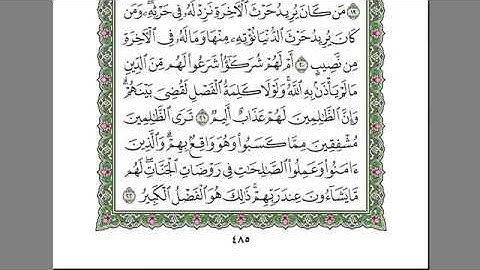 ١٩ مَن كَانَ يُرِيدُ حَرْثَ ٱلْـَٔاخِرَةِ نَزِدْ لَهُۥ فِى حَرْثِهِۦ ۖ وَمَن
كَانَ يُرِيدُ حَرْثَ ٱلدُّنْيَا نُؤْتِهِۦ مِنْهَا وَمَا لَهُۥ فِى ٱلْـَٔاخِرَةِ
مِن نَّصِيبٍ ٢٠ أَمْ لَهُمْ شُرَكَـٰٓؤُا۟ شَرَعُوا۟ لَهُم مِّنَ ٱلدِّينِ
مَا لَمْ يَأْذَنۢ بِهِ ٱللَّهُ ۚ وَلَوْلَا كَلِمَةُ ٱلْفَصْلِ لَقُضِىَ بَيْنَهُمْ ۗ
وَإِنَّ ٱلظَّـٰلِمِينَ لَهُمْ عَذَابٌ أَلِيمٌ ٢١ تَرَى ٱلظَّـٰلِمِينَ
مُشْفِقِينَ مِمَّا كَسَبُوا۟ وَهُوَ وَاقِعٌۢ بِهِمْ ۗ وَٱلَّذِينَ
ءَامَنُوا۟ وَعَمِلُوا۟ ٱلصَّـٰلِحَـٰتِ فِى رَوْضَاتِ ٱلْجَنَّاتِ ۖ لَهُم
مَّا يَشَآءُونَ عِندَ رَبِّهِمْ ۚ ذَٰلِكَ هُوَ ٱلْفَضْلُ ٱلْكَبِيرُ ٢٢
٤٨٥